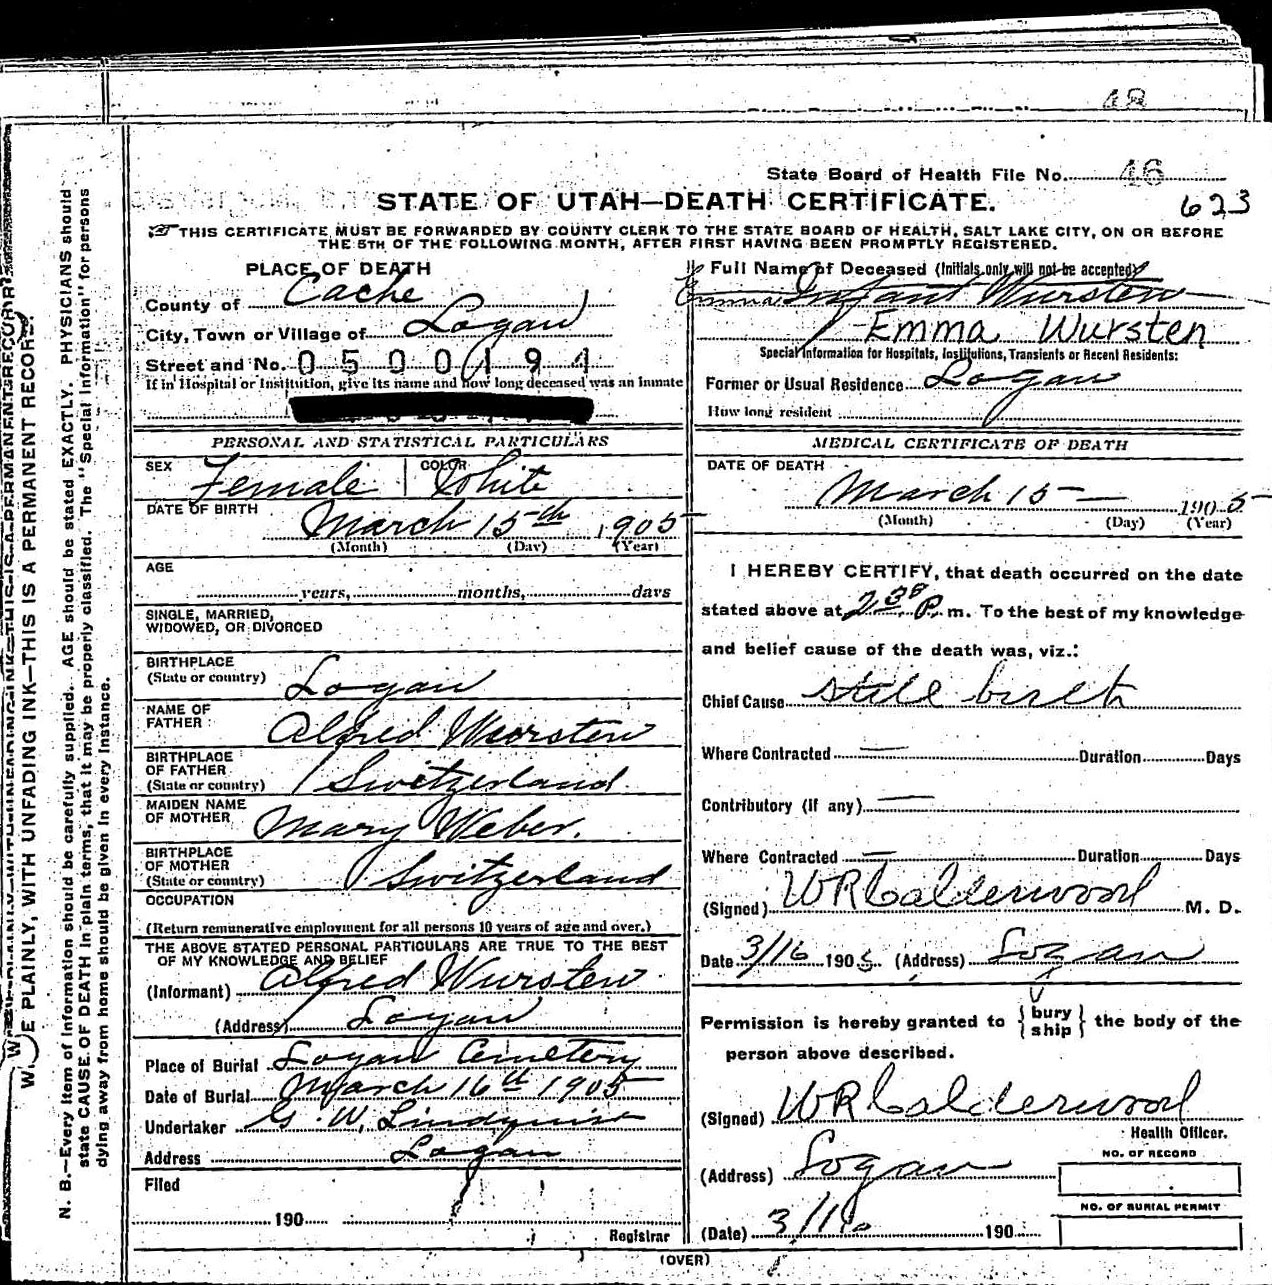 48
State Board of Health File No. 46
STATE OF UTAH—DEATH CERTIFICATE. 623
THIS CERTIFICATE MUST BE FORWARDED BY COUNTY CLERK TO THE STATE BOARD OF HEALTH, SALT LAKE CITY, ON OR BEFORE
THE 5TH OF THE FOLLOWING MONTH, AFTER FIRST HAVING BEEN PROMPTLY REGISTERED.
PLACE OF DEATH
County of Cache
City, Town or Village of Logan
Street and No. 0500191
If in Hospital or Institution, give its name and how long deceased was an inmate
Full Name of Deceased (Initials only will not be accepted)
Emma Infant Wursten
Emma Wursten
Special Information for Hospitals, Institutions, Transients or Recent Residents:
Former or Usual Residence Logan
How long resident
PERSONAL AND STATISTICAL PARTICULARS
SEX Female COLOR White
DATE OF BIRTH March 15th 1905
(Month) (Day) (Year)
AGE
years, months, days
SINGLE, MARRIED,
WIDOWED, OR DIVORCED
BIRTHPLACE
(State or country) Logan
NAME OF
FATHER Alfred Wursten
BIRTHPLACE
OF FATHER
(State or country) Switzerland
MAIDEN NAME
OF MOTHER Mary Weber.
BIRTHPLACE
OF MOTHER
(State or country) Switzerland
OCCUPATION
(Return remunerative employment for all persons 10 years of age and over.)
THE ABOVE STATED PERSONAL PARTICULARS ARE TRUE TO THE BEST
OF MY KNOWLEDGE AND BELIEF
(Informant) Alfred Wursten
(Address) Logan
Place of Burial Logan Cemetery
Date of Burial March 16th 1905
Undertaker G. W. Lindquist
Address Logan
Filed
190
Registrar
MEDICAL CERTIFICATE OF DEATH
DATE OF DEATH
March 15 1905
(Month) (Day) (Year)
I HEREBY CERTIFY, that death occurred on the date
stated above at 2 30 P. m. To the best of my knowledge
and belief cause of the death was, viz.:
Chief Cause still birth
Where Contracted — Duration Days
Contributory (if any) —
Where Contracted — Duration Days
(Signed) WR Calderwood M. D.
Date 3/16 1905. (Address) Logan
Permission is hereby granted to { bury
ship } the body of the
person above described.
(Signed) WR Calderwood
Health Officer.
(Address) Logan
NO. OF RECORD
NO. OF BURIAL PERMIT
(Date) 3/16 190
(OVER)
WRITE PLAINLY, WITH UNFADING INK—THIS IS A PERMANENT RECORD.
N. B.—Every item of information should be carefully supplied. AGE should be stated EXACTLY. PHYSICIANS should
state CAUSE OF DEATH in plain terms, that it may be properly classified. The "Special Information" for persons
dying away from home should be given in every instance.